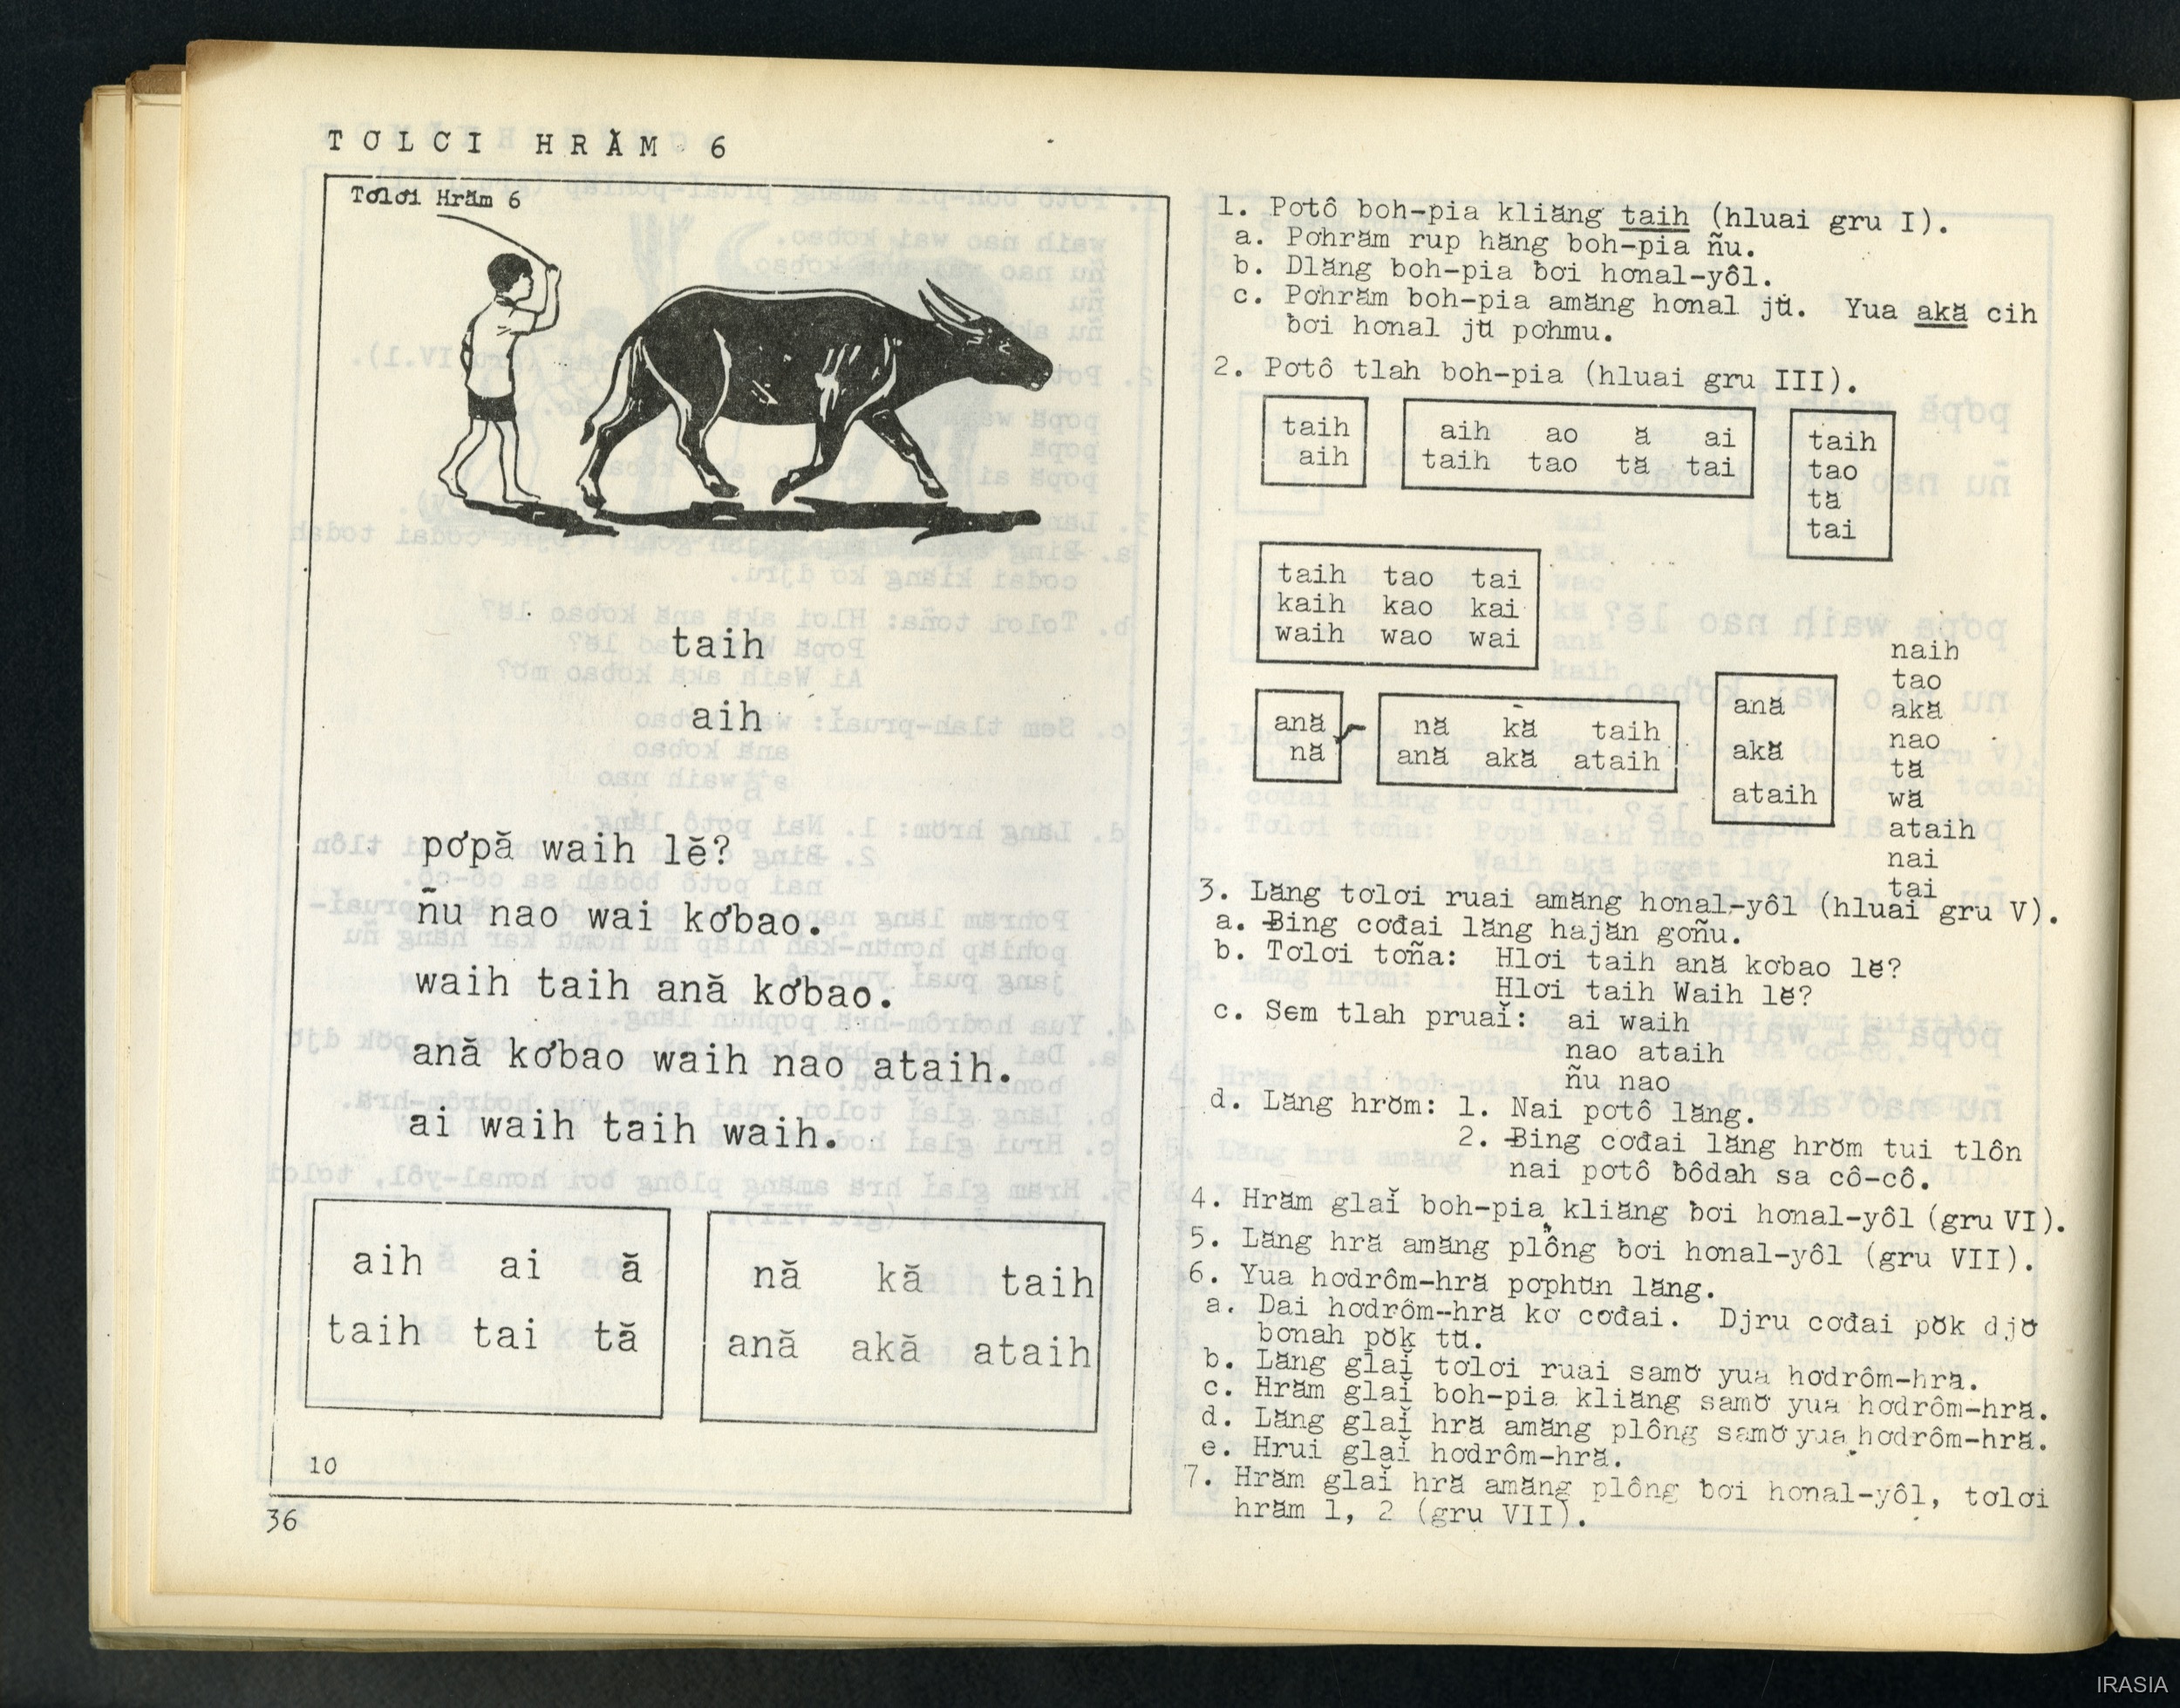 TƠLƠI HRĂM 6
Tơlơi Hrăm 6
taih
aih
pơpă waih lĕ?
ñu nao wai kơbao.
waih taih ană kơbao.
ană kơbao waih nao ataih.
ai waih taih waih.
aih ai ă
taih tai tă
nă kă taih
ană akă ataih
10
36
1. Pơtô boh-pia kliăng taih (hluai gru I).
a. Pơhrăm rup hăng boh-pia ñu.
b. Dlăng boh-pia ƀơi hơnal-yôl.
c. Pơhrăm boh-pia amăng hơnal jŭ. Yua akă cih
ƀơi hơnal jŭ pơhmu.
2. Pơtô tlah boh-pia (hluai gru III).
taih
aih
aih ao ă ai
taih tao tă tai
taih
tao
tă
tai
taih tao tai
kaih kao kai
waih wao wai
ană
nă
nă kă taih
ană akă ataih
ană
akă
ataih
naih
tao
akă
nao
tă
wă
ataih
nai
tai
3. Lăng tơlơi ruai amăng hơnal-yôl (hluai gru V).
a. Ƀing cơđai lăng hajăn gơñu.
b. Tơlơi tơña: Hlơi taih ană kơbao lĕ?
Hlơi taih Waih lĕ?
c. Sem tlah pruaĭ: ai waih
nao ataih
ñu nao
d. Lăng hrŏm: 1. Nai pơtô lăng.
2. Ƀing cơđai lăng hrŏm tui tlôn
nai pơtô ƀôdah sa cô-cô.
4. Hrăm glaĭ boh-pia kliăng ƀơi hơnal-yôl (gru VI).
5. Lăng hră amăng plông ƀơi hơnal-yôl (gru VII).
6. Yua hơdrôm-hră pơphŭn lăng.
a. Dai hơdrôm-hră kơ cơđai. Djru cơđai pŏk djơ̆
bơnah pŏk tŭ.
b. Lăng glaĭ tơlơi ruai samơ̆ yua hơdrôm-hră.
c. Hrăm glaĭ boh-pia kliăng samơ̆ yua hơdrôm-hră.
d. Lăng glaĭ hră amăng plông samơ̆ yua hơdrôm-hră.
e. Hrui glaĭ hơdrôm-hră.
7. Hrăm glaĭ hră amăng plông ƀơi hơnal-yôl, tơlơi
hrăm 1, 2 (gru VII).
IRASIA